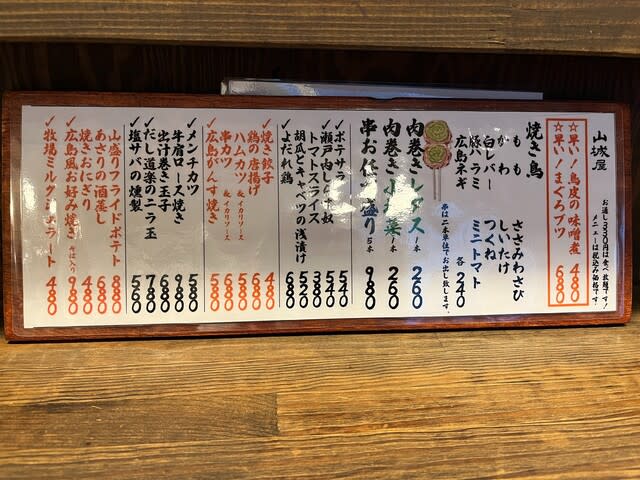 山城屋
お通し330円は食べ放題です!
メニューは税込み価格です。
☆早い!鳥皮の味噌煮 480
☆早い!まぐろブツ 680
焼き鳥
もも
かわ
白レバー
豚バラミ
広島ネギ
ささみわさび
しいたけ
つくね
ミニトマト
各240
串は二本単位でお出し致します。
肉巻きレタス 1本 260
肉巻き 1本 260
串お 盛り 5本 980
✓ポテサラ 540
✓瀬戸内しらす奴 540
トマトスライス 380
胡瓜とキャベツの浅漬け 520
✓よだれ鶏 680
✓焼き餃子 480
鶏の唐揚げ 680
ハムカツ & イカリソース
串カツ & イカリソース
✓広島がんす焼き 580
✓メンチカツ 580
牛肩ロース焼き 980
出汁巻き玉子 680
✓だし道楽のニラ玉 780
✓塩サバの燻製 560
山盛りフライドポテト 880
あさりの酒蒸し 680
焼きおにぎり 480
✓広島風お好み焼き そば入り 980
✓牧場ミルクジェラート 480